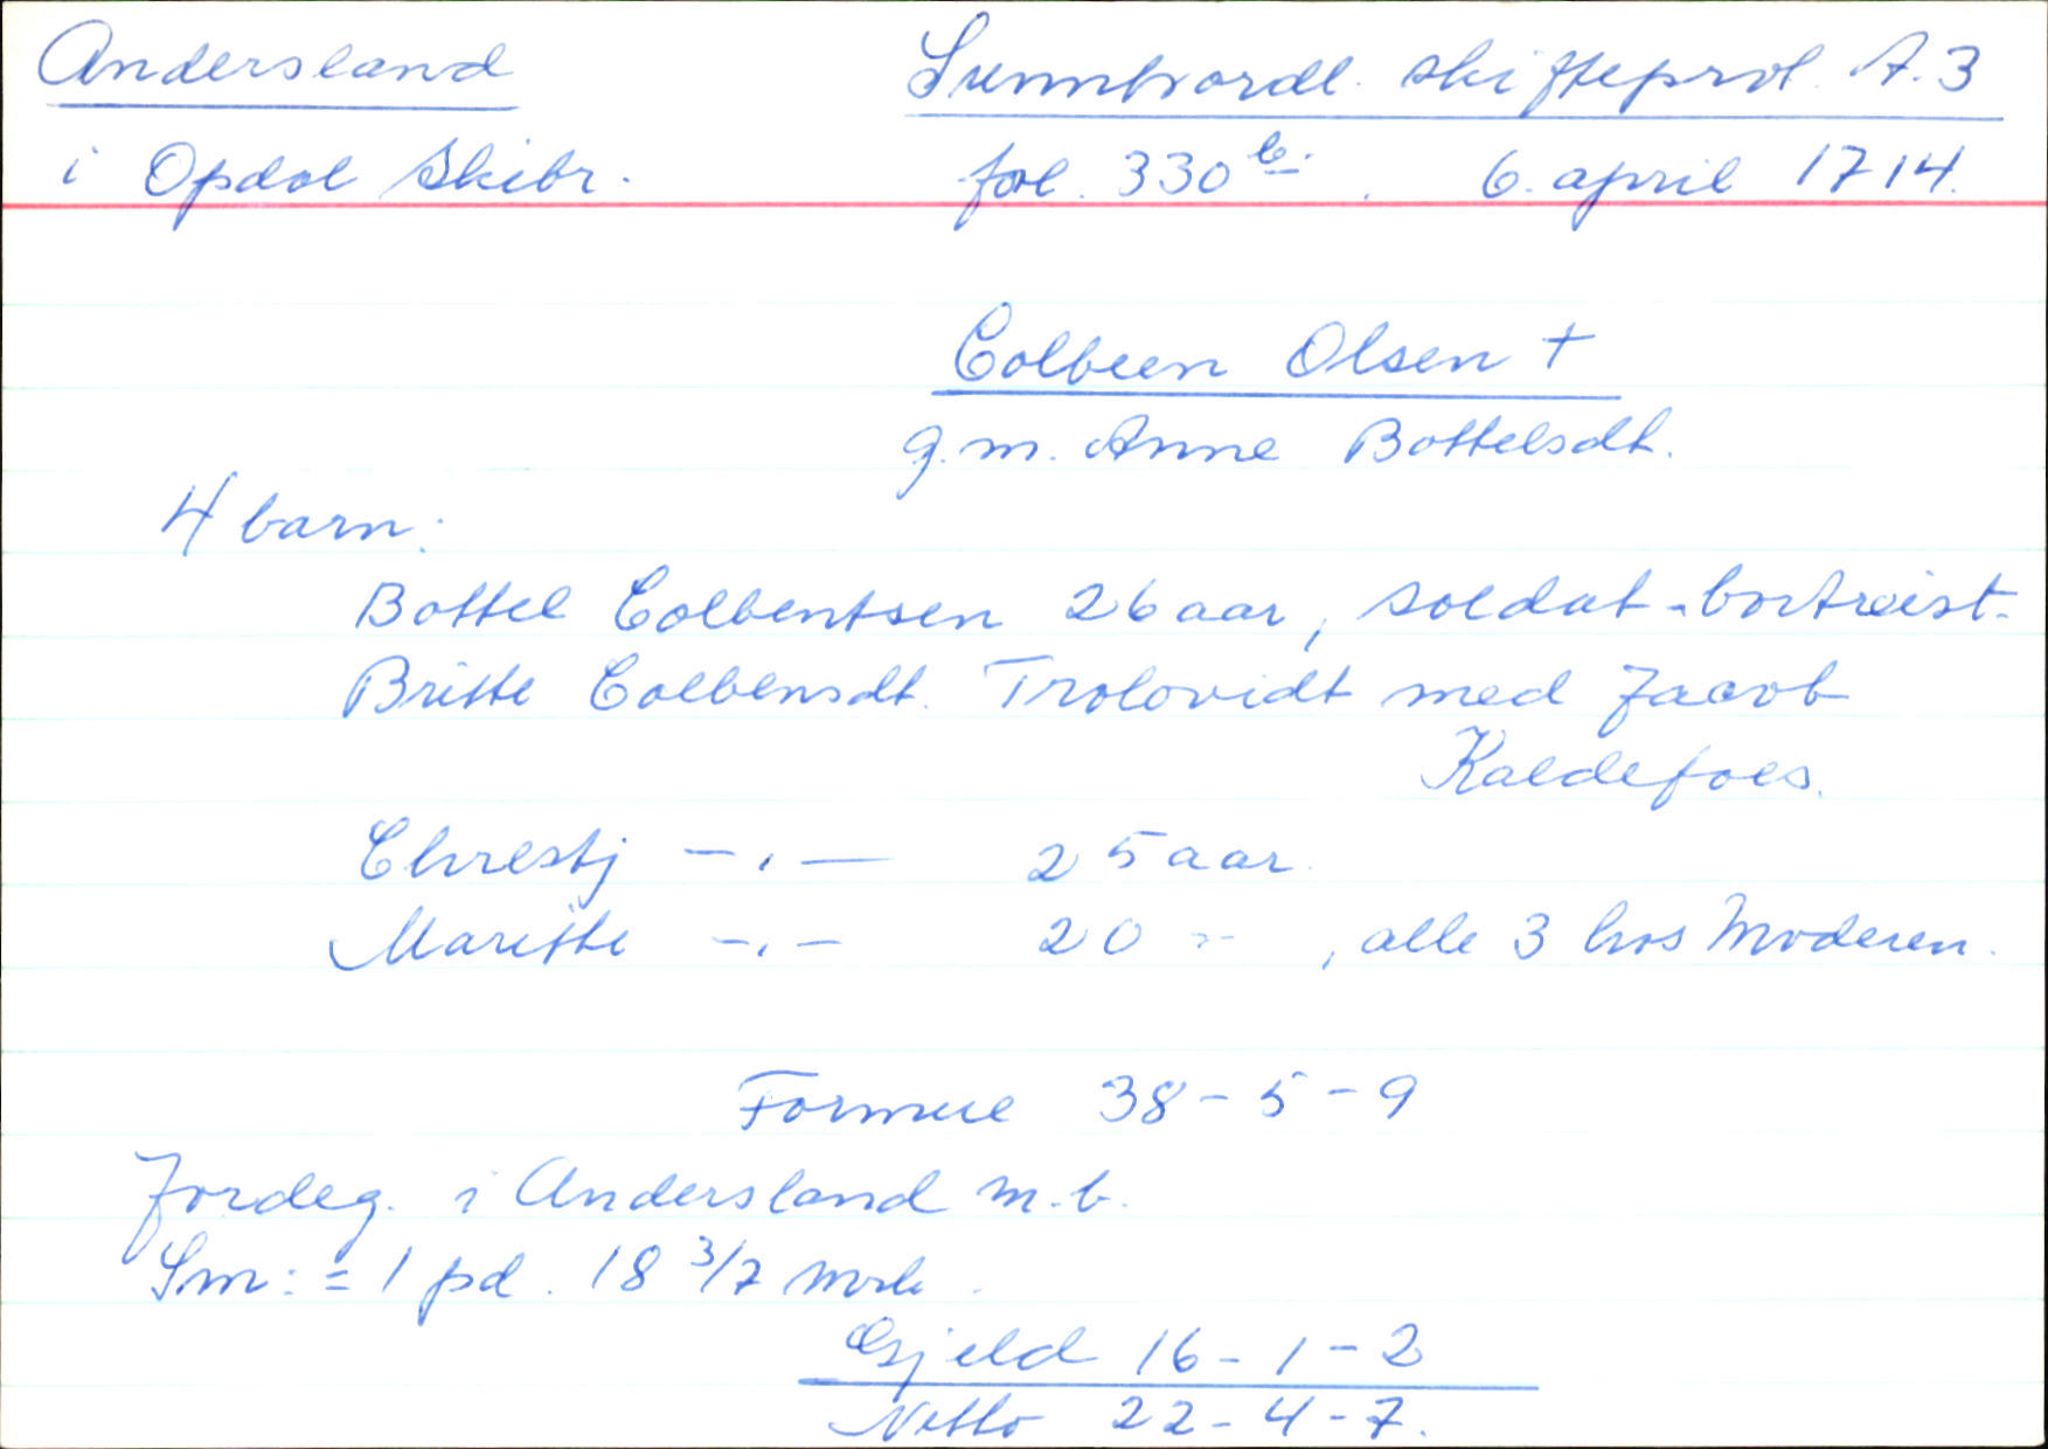 Andersland
Sunnhordl. skifteprot. A.3
i Opdal Skibr.
fol. 330 b. 6. april 1714.
Colbeen Olsen +
g.m. Anne Bottelsdt.
4 barn:
Bottel Colbentsen 26 aar, soldat - bortreist.
Britte Colbensdt. Trolovidt med Jacob
Kaldefoes.
Chrestj — „ — 25 aar.
Maritte — „ — 20 „ , alle 3 hos Moderen.
Formue 38 - 5 - 9
Jordeg. i Andersland m.b.
Sm: = 1 pd. 18 3/7 mrk.
Gjeld 16 - 1 - 2
Netto 22 - 4 - 7.